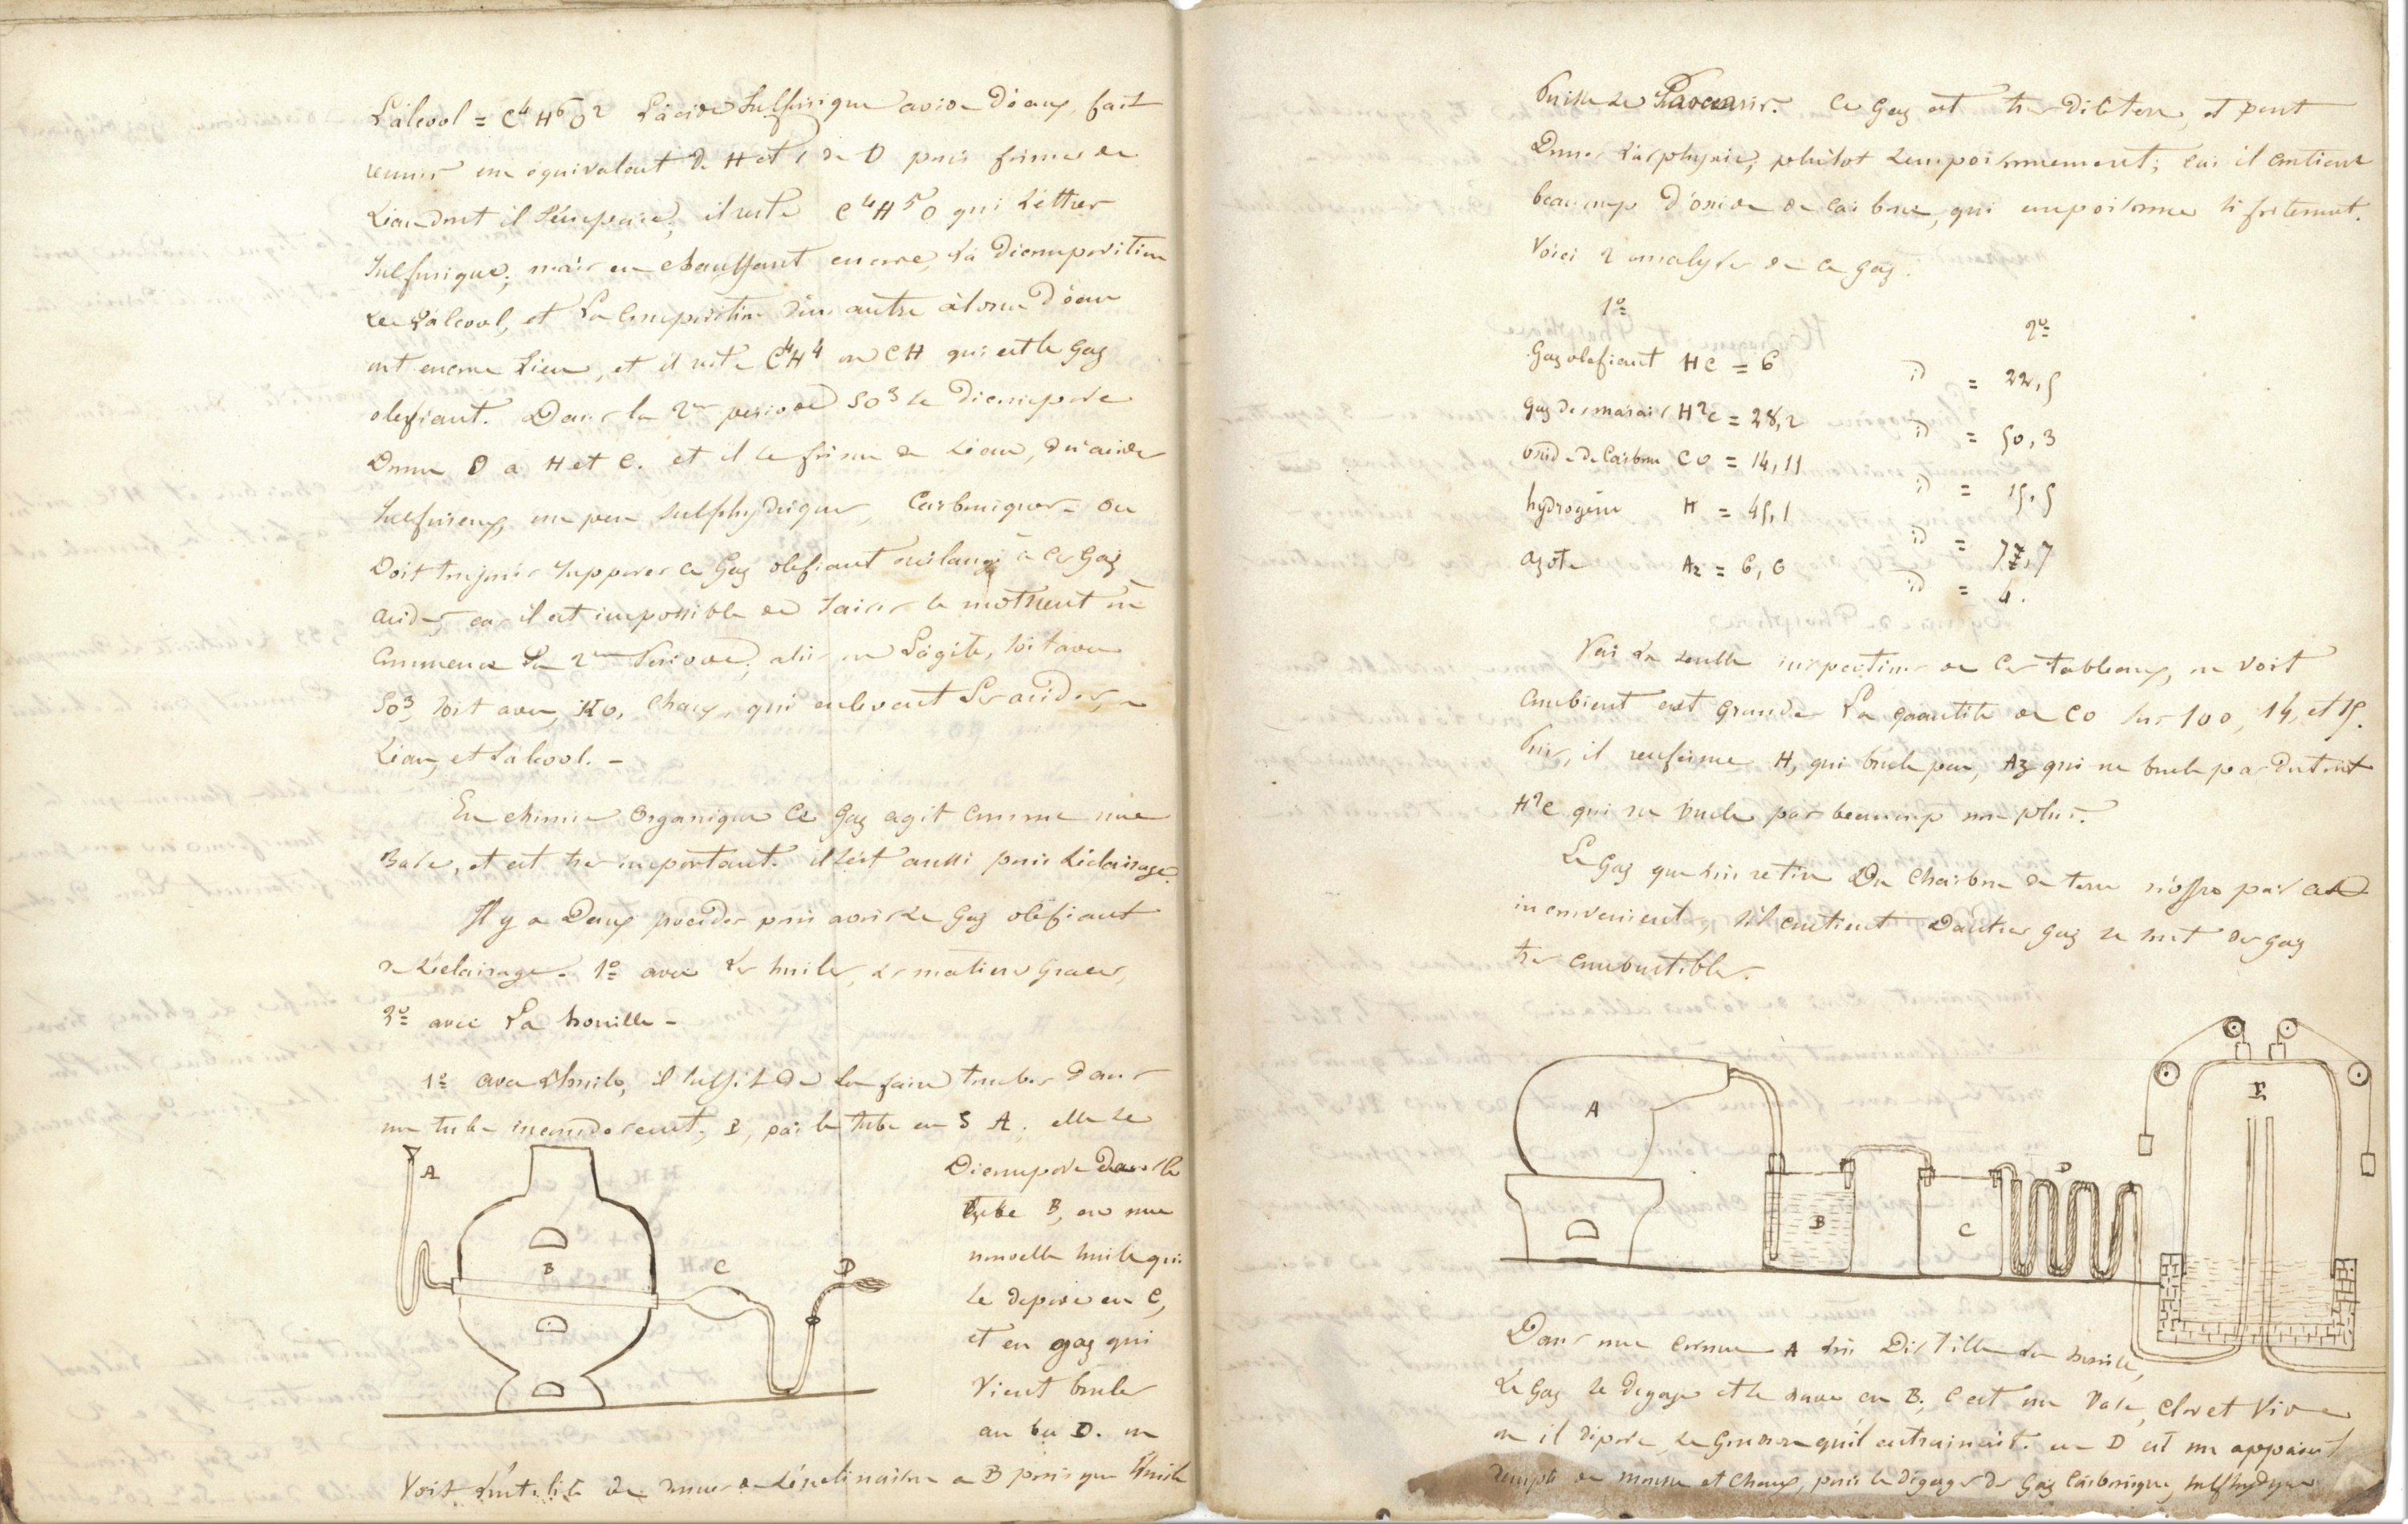 L'alcool = C4 H6 O2 L'acide sulfurique avide d'eau, fait
réunir un équivalent de H et 1 de O pour former de
L'eau dont il s'empare, il reste C4H5O qui L'éther
sulfurique; mais en chauffant encore, la décomposition
de L'alcool, et la composition d'un autre atome d'eau
ont encore lieu, et il reste C4H4 ou CH qui est le gaz
olefiant. Dans la 2me periode SO3 se décompose
Donne O a H et C. et il se forme de L'eau, du acide
sulfureux, un peu sulphydrique, Carbonique - On
Doit toujours supposer ce Gaz olefiant mélangé à ces Gaz
acides, car il est impossible de saisir le moment où
commence La 2me Periode; alors on L'agite, soit avec
SO3, soit avec, KO, Chaux, qui enlevent Les acides,
L'eau, et L'alcool. -
En chimie Organique Ce Gaz agit comme une
Base, et est tres important. il sert aussi pour L'éclairage.
Il y a Deux procédés pour avoir Le Gaz olefiant
de L'éclairage. 1º avec Les huiles, Les matieres Grasses,
2º avec La houille -
1º avec L'huile, il suffit de la faire tomber dans
un tube incandescent, B, par le tube en S A. elle se
A
B
C
D
Décompose dans le
tube B, en une
nouvelle huile qui
se depose en C,
et en gaz qui
vient bruler
au bec D. on
Voit L'utilité de donner de L'inclinaison a B pour que L'huile
puisse Le Parcourir. Ce Gaz est tres Délétere, et peut
Donner L'asphyxie, plutot L'empoisonnement; car il contient
beaucoup d'oxide de Carbone, qui empoisonne si fortement.
Voici 2 analyses de ce gaz.
1º 2º
Gaz olefiant HC = 6 id = 22,5
Gaz des marais H2C = 28,2 id = 50,3
oxide de Carbone CO = 14,11 id = 15,5
hydrogène H = 45,1 id = 7,7
azote Az = 6,6 id = 4.
Par La seulle inspection de Ces tableaux, on voit
Combient est Grande La quantité de CO sur 100, 14, et 15.
Puis, il renferme H, qui brule peu, Az qui ne brule pas du tout
H2C qui ne brule pas beaucoup non plus.
Le Gaz que L'on retire Du Charbon de terre n'offre pas cet
inconvenient, s'il contient D'autres gaz ce sont des gaz
tres combustibles.
A
B
C
D
E
Dans une cornue A L'on Distille La houille,
Le Gaz se degage et se lave en B. C est un Vase, Clos et Vide
où il dépose, Le Goudron qu'il entrainait. en D est un appareil
rempli de mousse et Chaux, pour le dégager des Gaz Carbonique, sulfhydrique